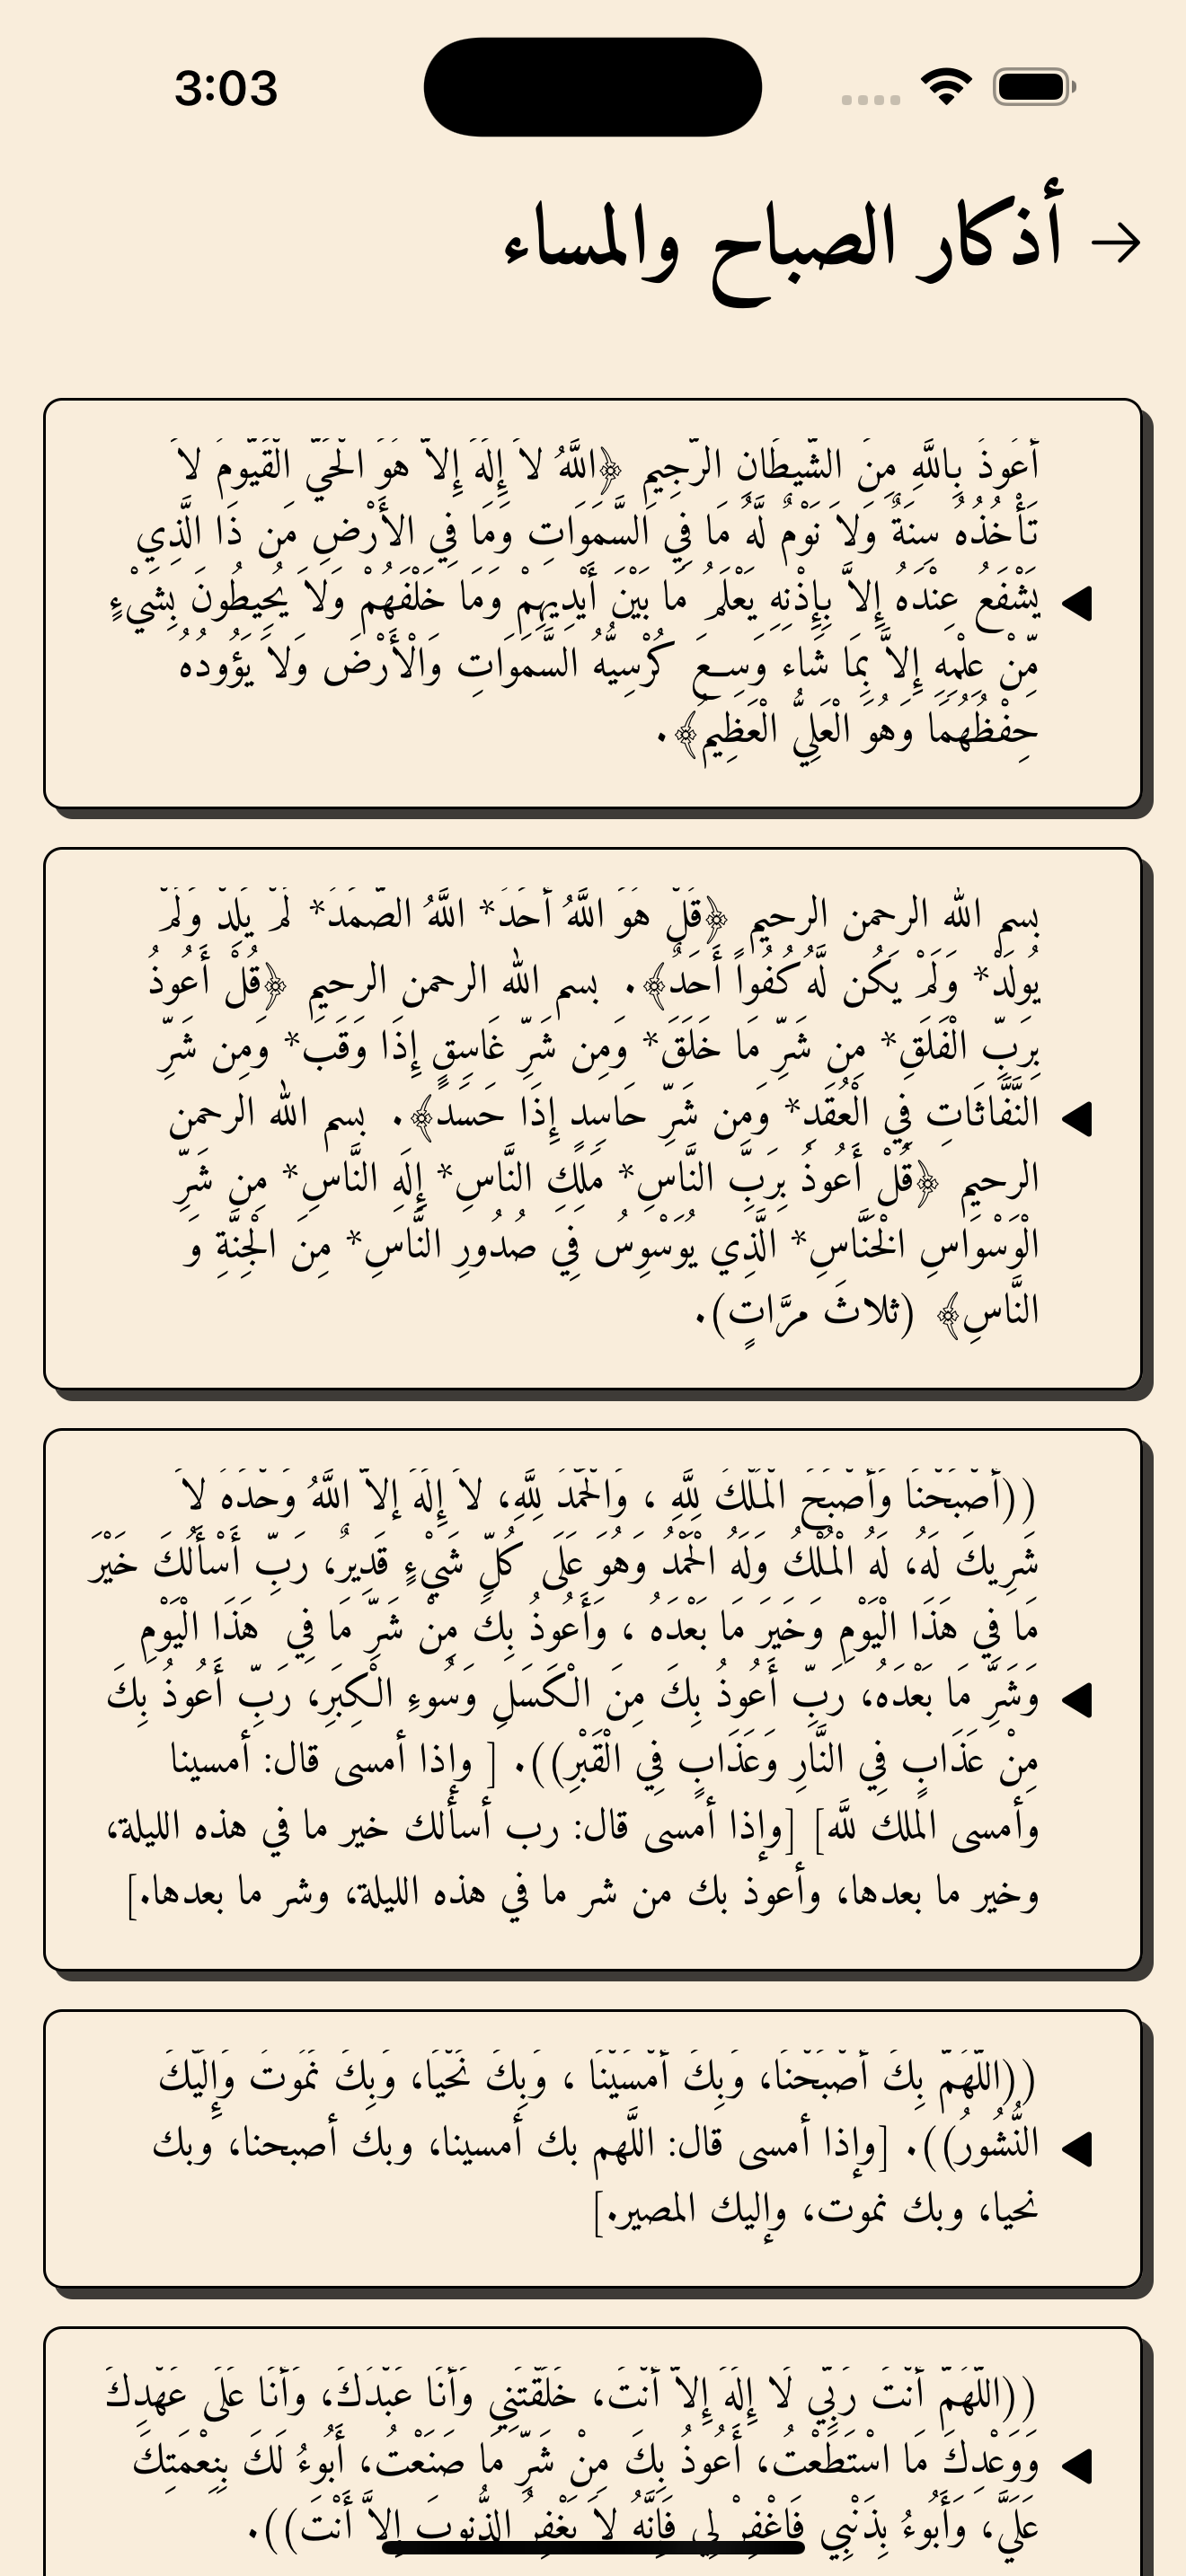 3:03
أذكار الصباح والمساء
أَعُوذُ بِاللَّهِ مِنَ الشَّيطَانِ الرَّجِيمِ ﴿اللَّهُ لاَ إِلَهَ إِلاَّ هُوَ الْحَيُّ الْقَيُّومُ لاَ
تَأْخُذُهُ سِنَةٌ وَلاَ نَوْمٌ لَّهُ مَا فِي السَّمَوَاتِ وَمَا فِي الأَرْضِ مَن ذَا الَّذِي
يَشْفَعُ عِنْدَهُ إِلاَّ بِإِذْنِهِ يَعْلَمُ مَا بَيْنَ أَيْدِيهِمْ وَمَا خَلْفَهُمْ وَلاَ يُحِيطُونَ بِشَيْءٍ
مِّنْ عِلْمِهِ إِلاَّ بِمَا شَاء وَسِعَ كُرْسِيُّهُ السَّمَوَاتِ وَالْأَرْضَ وَلاَ يَؤُودُهُ
حِفْظُهُمَا وَهُوَ الْعَلِيُّ الْعَظِيمُ﴾.
بسم الله الرحمن الرحيم ﴿قُلْ هُوَ اللَّهُ أَحَدٌ* اللَّهُ الصَّمَدُ* لَمْ يَلِدْ وَلَمْ
يُولَدْ* وَلَمْ يَكُن لَّهُ كُفُواً أَحَدٌ﴾. بسم الله الرحمن الرحيم ﴿قُلْ أَعُوذُ
بِرَبِّ الْفَلَقِ* مِن شَرِّ مَا خَلَقَ* وَمِن شَرِّ غَاسِقٍ إِذَا وَقَبَ* وَمِن شَرِّ
النَّفَّاثَاتِ فِي الْعُقَدِ* وَمِن شَرِّ حَاسِدٍ إِذَا حَسَدَ﴾. بسم الله الرحمن
الرحيم ﴿قُلْ أَعُوذُ بِرَبِّ النَّاسِ* مَلِكِ النَّاسِ* إِلَهِ النَّاسِ* مِن شَرِّ
الْوَسْوَاسِ الْخَنَّاسِ* الَّذِي يُوَسْوِسُ فِي صُدُورِ النَّاسِ* مِنَ الْجِنَّةِ وَ
النَّاسِ﴾ (ثلاثَ مرَّاتٍ).
((أَصْبَحْنَا وَأَصْبَحَ الْمُلْكُ لِلَّهِ ، وَالْحَمْدُ لِلَّهِ، لاَ إِلَهَ إلاَّ اللَّهُ وَحْدَهُ لاَ
شَرِيكَ لَهُ، لَهُ الْمُلْكُ وَلَهُ الْحَمْدُ وَهُوَ عَلَى كُلِّ شَيْءٍ قَدِيرٌ، رَبِّ أَسْأَلُكَ خَيْرَ
مَا فِي هَذَا الْيَوْمِ وَخَيرَ مَا بَعْدَهُ ، وَأَعُوذُ بِكَ مِنْ شَرِّ مَا فِي هَذَا الْيَوْمِ
وَشَرِّ مَا بَعْدَهُ، رَبِّ أَعُوذُ بِكَ مِنَ الْكَسَلِ وَسُوءِ الْكِبَرِ، رَبِّ أَعُوذُ بِكَ
مِنْ عَذَابٍ فِي النَّارِ وَعَذَابٍ فِي الْقَبْرِ)). [ وإذا أمسى قال: أمسينا
وأمسى الملك لله] [وإذا أمسى قال: رب أسألك خير ما في هذه الليلة،
وخير ما بعدها، وأعوذ بك من شر ما في هذه الليلة، وشر ما بعدها.]
((اللَّهُمَّ بِكَ أَصْبَحْنَا، وَبِكَ أَمْسَيْنَا ، وَبِكَ نَحْيَا، وَبِكَ نَمُوتُ وَإِلَيْكَ
النُّشُورُ)). [وإذا أمسى قال: اللَّهم بك أمسينا، وبك أصبحنا، وبك
نحيا، وبك نموت، وإليك المصير.]
((اللَّهُمَّ أَنْتَ رَبِّي لَا إِلَهَ إِلاَّ أَنْتَ، خَلَقْتَنِي وَأَنَا عَبْدُكَ، وَأَنَا عَلَى عَهْدِكَ
وَوَعْدِكَ مَا اسْتَطَعْتُ، أَعُوذُ بِكَ مِنْ شَرِّ مَا صَنَعْتُ، أَبُوءُ لَكَ بِنِعْمَتِكَ
عَلَيَّ، وَأَبُوءُ بِذَنْبِي فَاغْفِرْ لِي فَإِنَّهُ لاَ يَغْفِرُ الذُّنوبَ إِلاَّ أَنْتَ)).